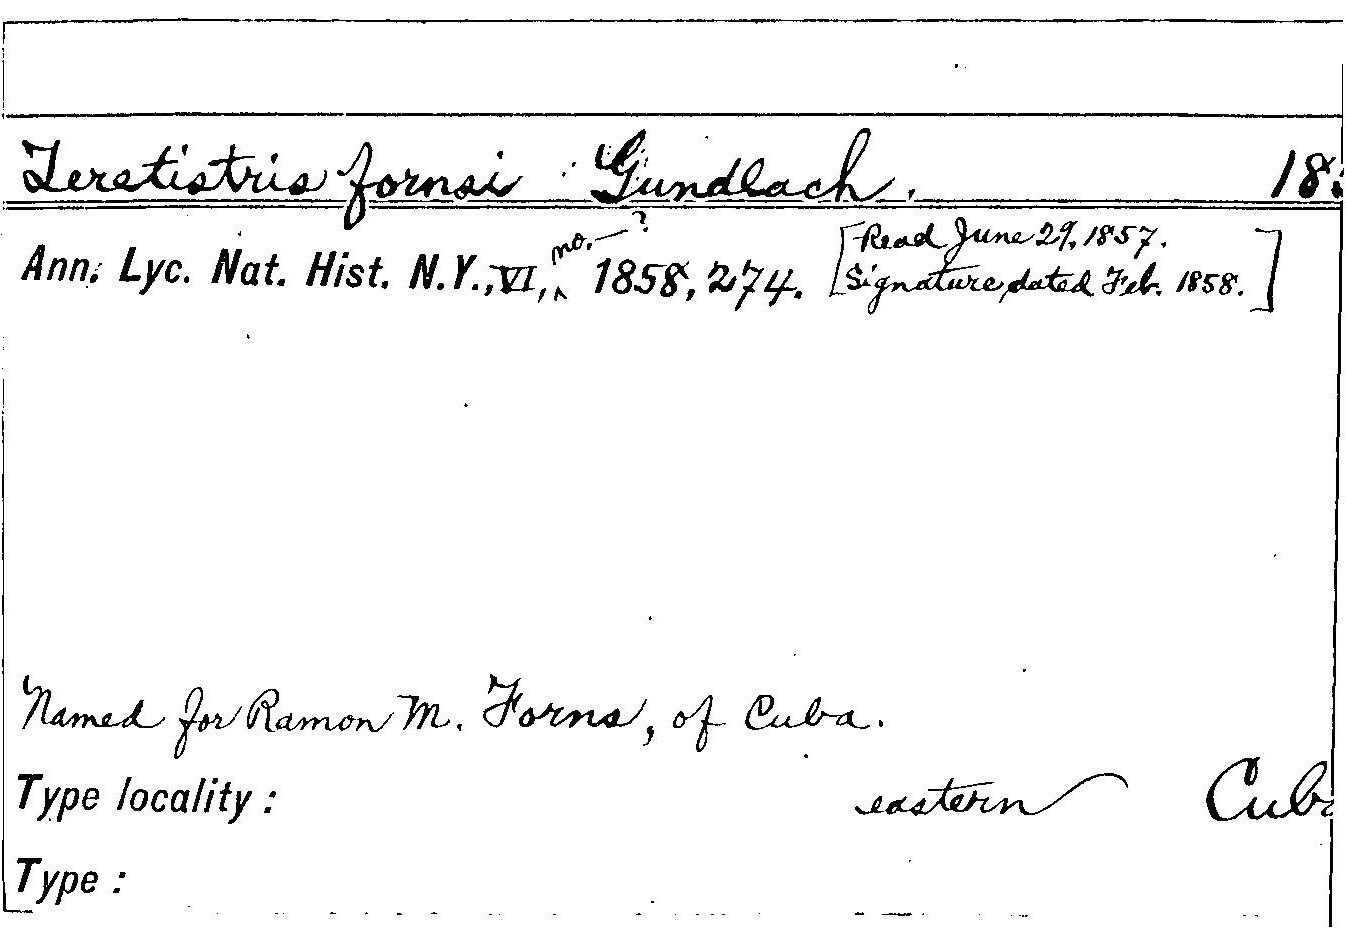 Teretistris fornsi Gundlach. 18
Ann. Lyc. Nat. Hist. N.Y., VI, no. —? 1858, 274. [Read June 29, 1857.
Signature dated Feb. 1858.]
Named for Ramon M. Forns, of Cuba.
Type locality: eastern Cuba
Type: